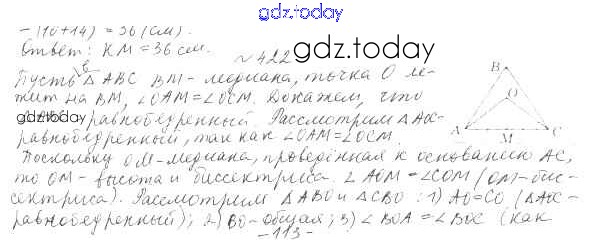 gdz.today
- (10+14) = 36 (см).
Ответ: KM = 36 см.
№ 422
gdz.today
Пусть в △ABC BM - медиана, точка O ле-
жит на BM, ∠OAM = ∠OCM. Докажем, что
gdz.today равнобедренный. Рассмотрим △AOC-
равнобедренный, так как ∠OAM = ∠OCM.
Поскольку OM - медиана, проведённая к основанию AC,
то OM - высота и биссектриса. ∠AOM = ∠COM (OM - бис-
сектриса). Рассмотрим △ABO и △CBO: 1) AO = CO (△AOC-
равнобедренный); 2) BO - общая; 3) ∠BOA = ∠BOC (как
B
O
A
M
C
- 113 -